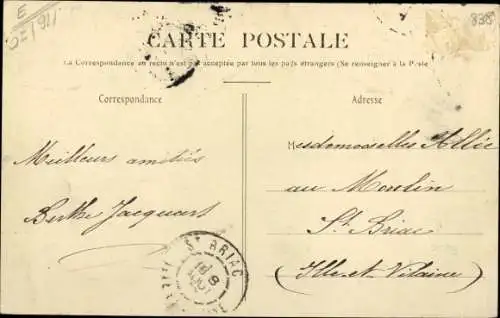 E
CARTE POSTALE
La Correspondance au recto n'est pas acceptée par tous les pays étrangers (Se renseigner à la Poste
Correspondance
Adresse
Mesdemoiselles
Meilleurs amitiés
au Moulin
Berthe Jacquart
St Briac
(Ille-et-Vilaine)
ST BRIAC